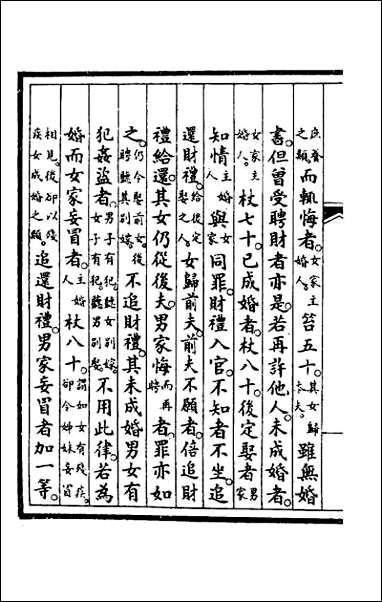 庶養之類而輒悔者女家主婚人笞五十其女歸本夫雖無婚
書但曾受聘財者亦是若再許他人未成婚者
女家主婚人杖七十已成婚者杖八十後定娶者男家
知情主婚人與女家同罪財禮入官不知者不坐追
還財禮給後定娶之人女歸前夫前夫不願者倍追財
禮給還其女仍從後夫男家悔而再聘者罪亦如
之仍令娶前女後聘聽其別嫁不追財禮其未成婚男女有
犯姦盜者男子有犯聽女別嫁女子有犯聽男別娶不用此律若為
婚而女家妄冒者主婚人杖八十謂如女有殘疾卻令姊妹妄冒
相見後卻以殘疾女成婚之類追還財禮男家妄冒者加一等